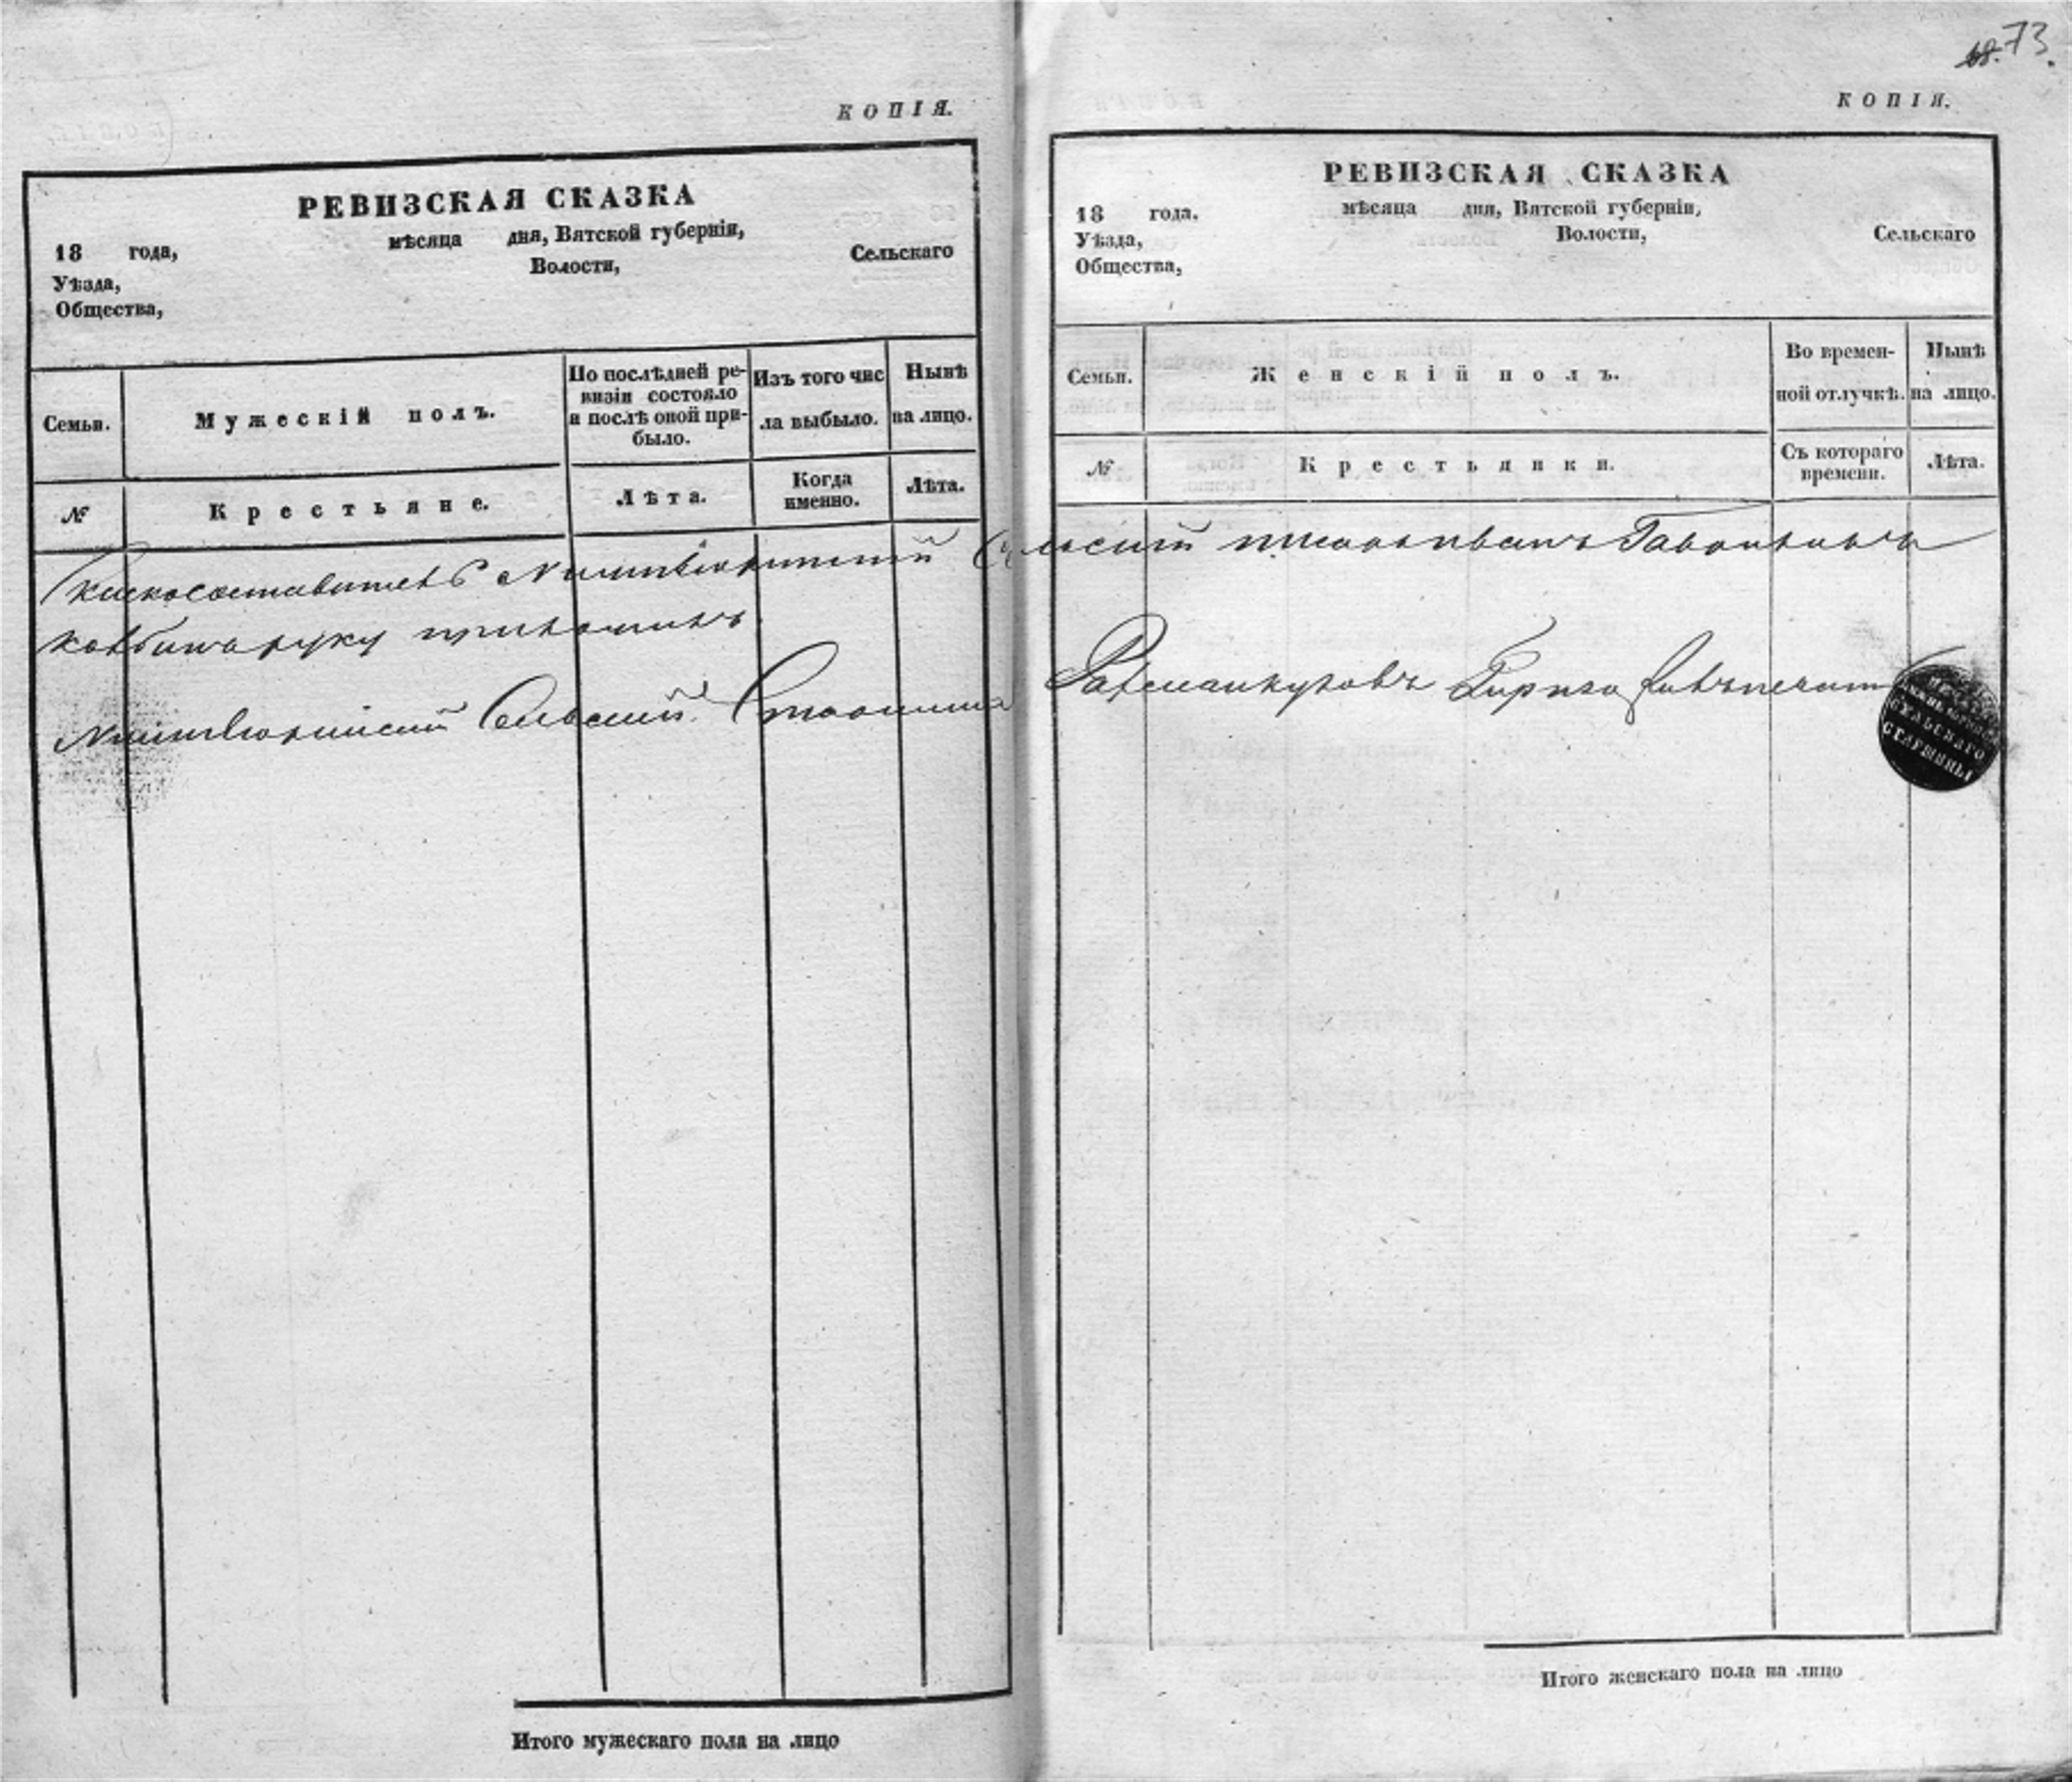 КОПІЯ.
РЕВИЗСКАЯ СКАЗКА
18 года, мѣсяца дня, Вятской губерніи,
Уѣзда, Волости, Сельскаго
Общества,
Семьи.
Мужескій полъ.
По послѣдней ре-
визіи состояло
и послѣ оной при-
было.
Изъ того чис
ла выбыло.
Нынѣ
на лицо.
№
Крестьяне.
Лѣта.
Когда
именно.
Лѣта.
руку приложилъ
Сельский Старшина
Итого мужескаго пола на лицо
68. 73.
КОПІЯ.
РЕВИЗСКАЯ СКАЗКА
18 года. мѣсяца дня, Вятской губерніи,
Уѣзда, Волости, Сельскаго
Общества,
Семьи.
Женскій полъ.
Во времен-
ной отлучкѣ.
Нынѣ
на лицо.
№
Крестьянки.
Съ котораго
времени.
Лѣта.
СЕЛЬСКАГО
СТАРШИНЫ
Итого женскаго пола на лицо